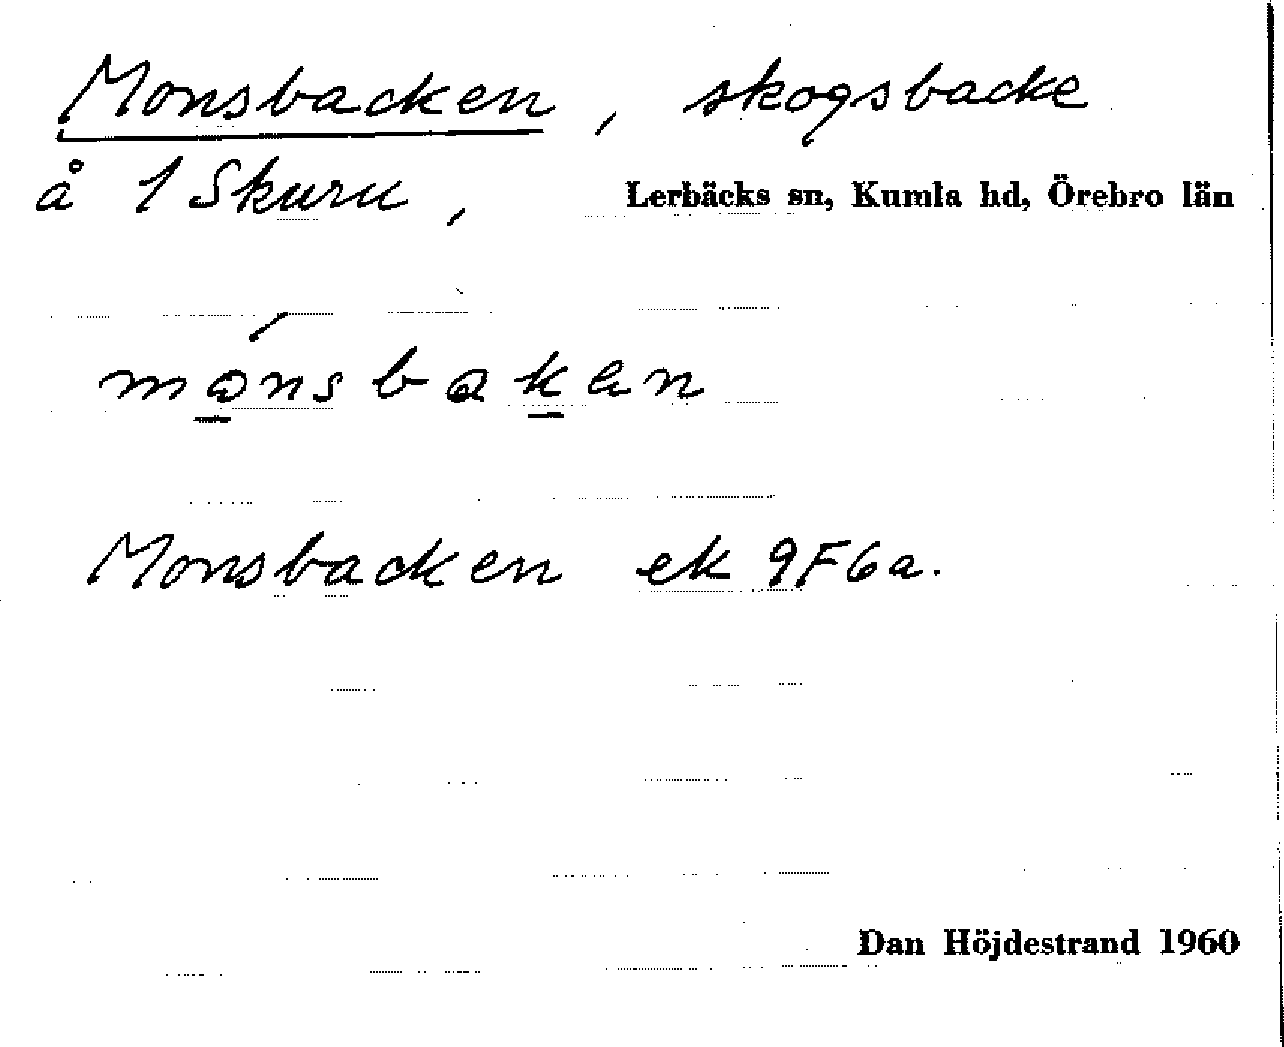 Monsbacken, skogsbacke
å 1 Skuru, Lerbäcks sn, Kumla hd, Örebro län
mó̲nsbak̲ən
Monsbacken ek 9F6a.
Dan Höjdestrand 1960